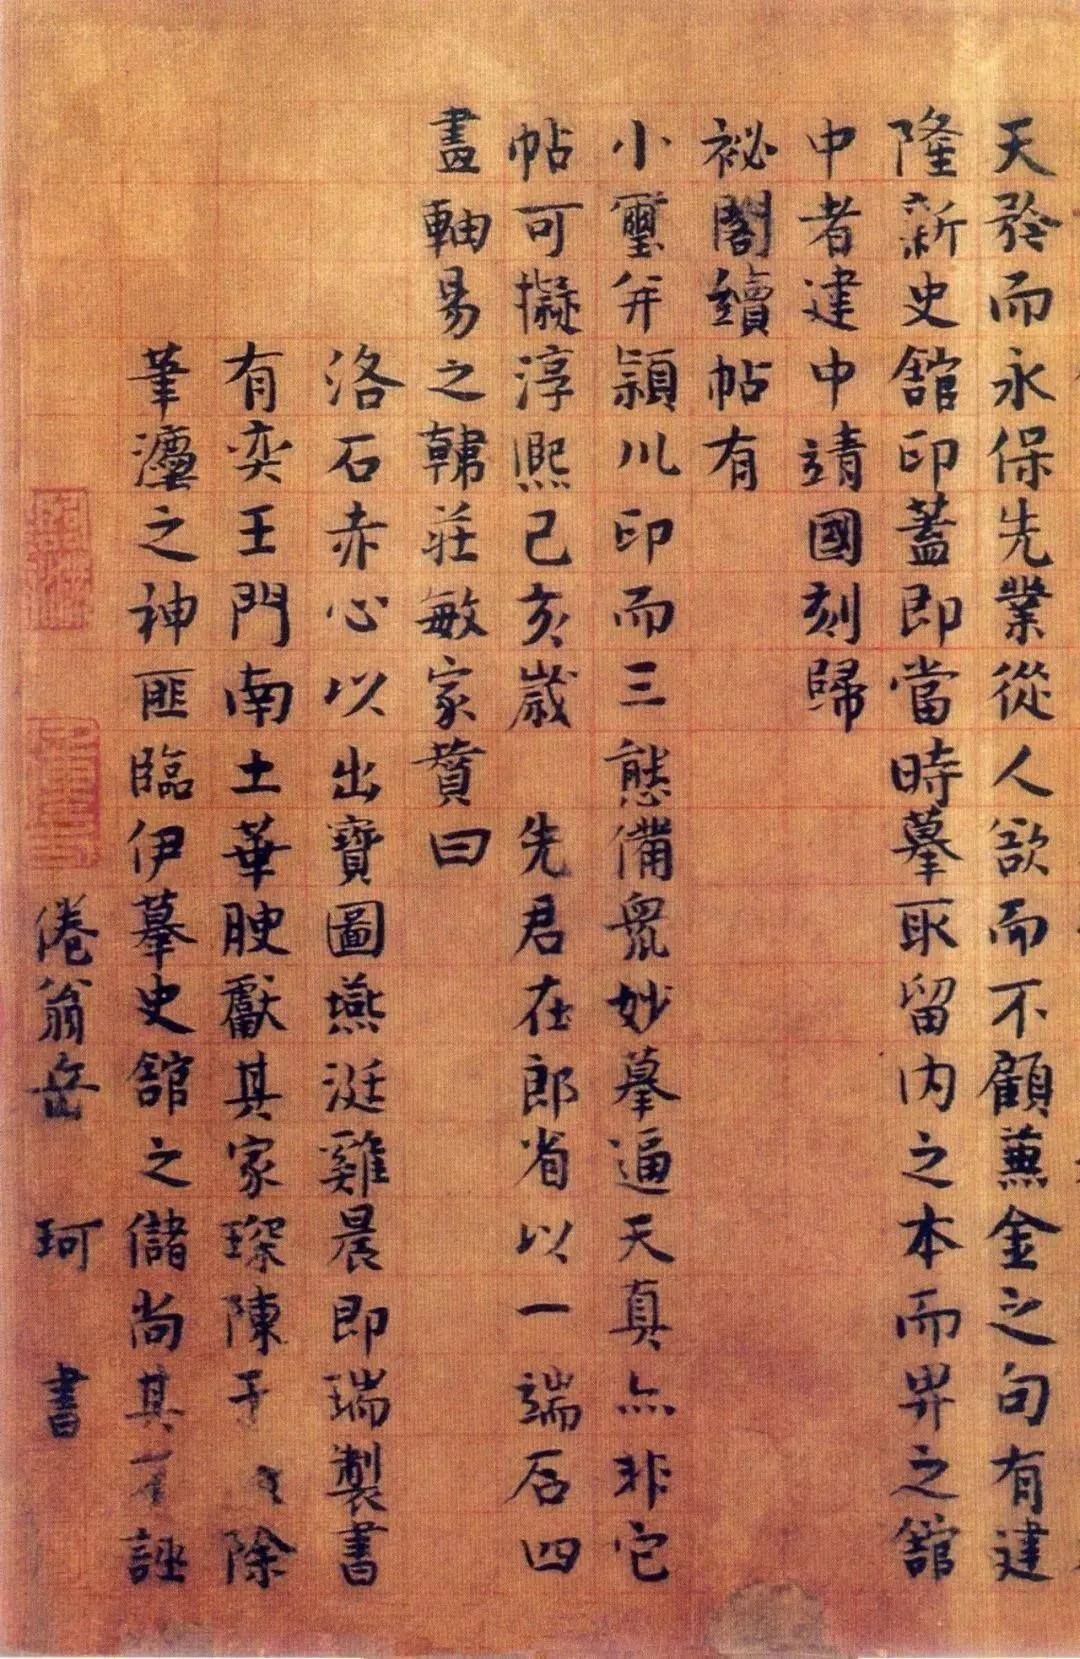 天發而永保先業從人欲而不顧蒹金之句有建
隆新史舘印蓋即當時摹取留内之本而畀之舘
中者建中靖國刻歸
祕閣續帖有
小璽并潁川印而三態備衆妙摹逼天真亦非它
帖可擬淳熙己亥歲 先君在郎省以一端石四
畫軸易之韓莊敏家贊曰
洛石赤心以出寶圖燕涎雞晨即瑞製書
有奕王門南土華腴獻其家琛陳于 除
筆瀍之神匪臨伊摹史舘之儲尚其 誣
倦翁岳 珂 書